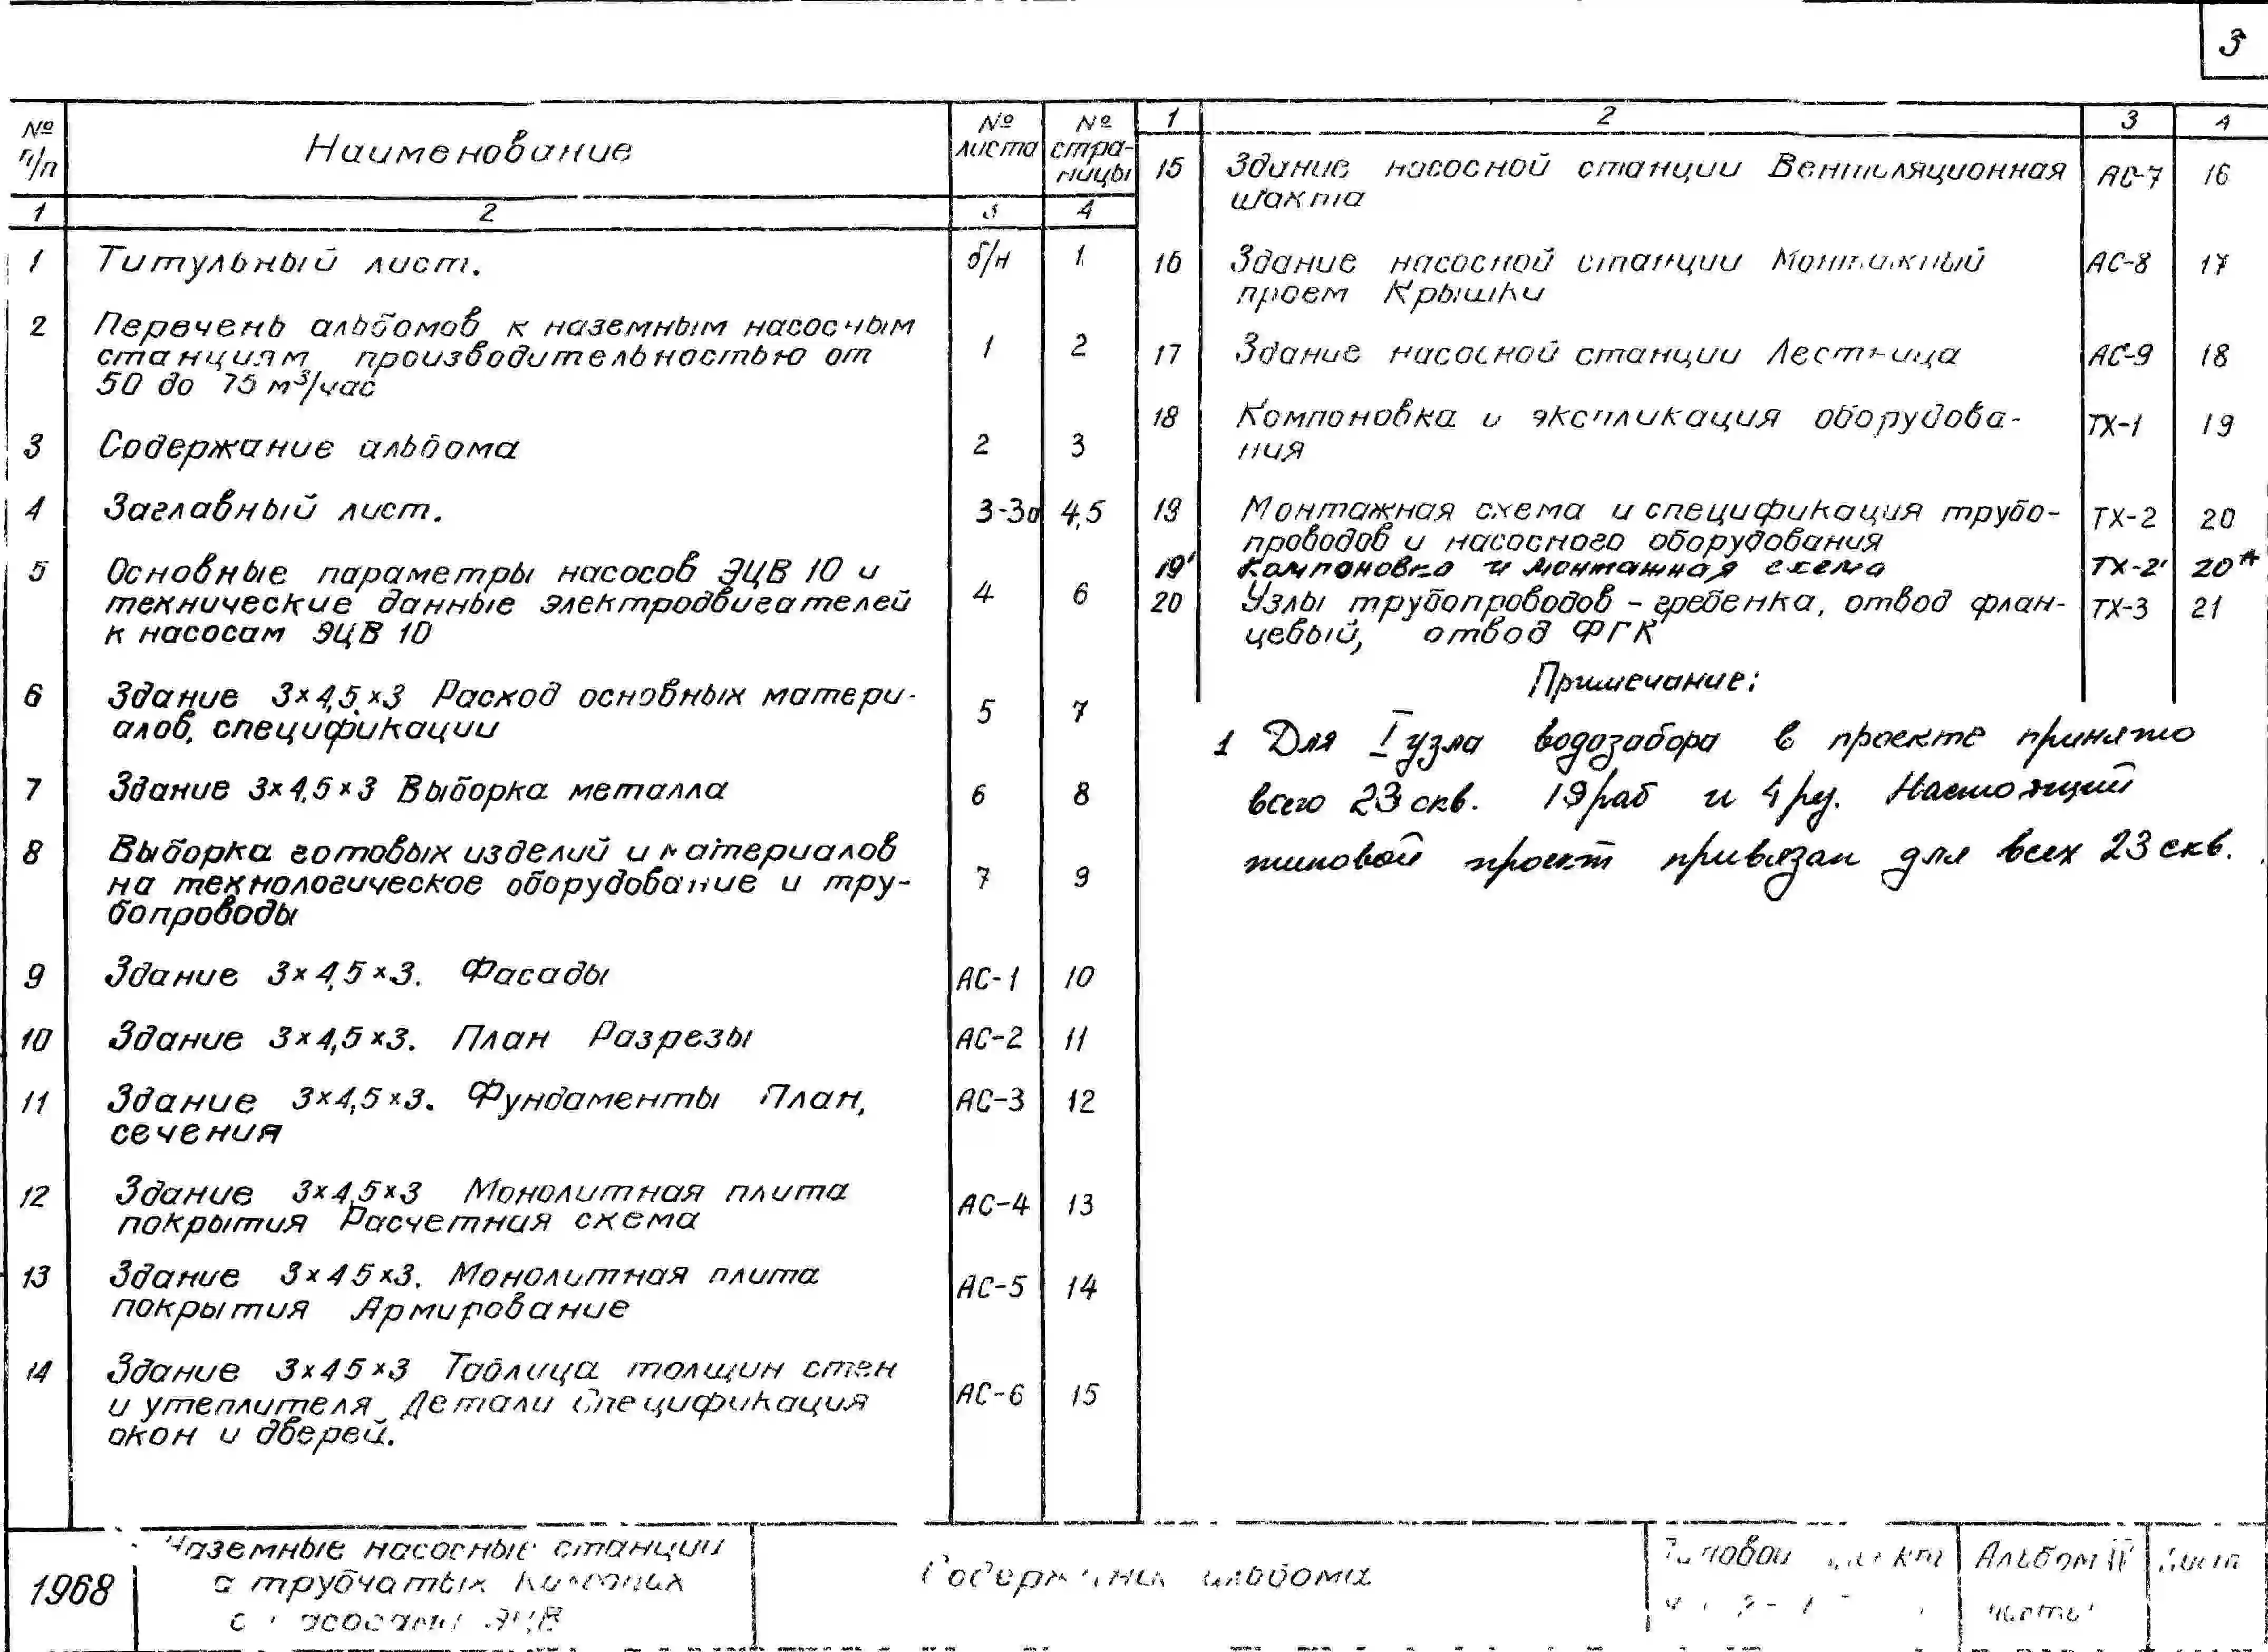 3
№ п/п Наименование № листа № стра-ницы
1 2 3 4
1 Титульный лист. б/н 1
2 Перечень альбомов к наземным насосным 1 2
станциям производительностью от
50 до 75 м³/час
3 Содержание альбома 2 3
4 Заглавный лист. 3-3а 4,5
5 Основные параметры насосов ЭЦВ 10 и 4 6
технические данные электродвигателей
к насосам ЭЦВ 10
6 Здание 3×4,5×3 Расход основных матери- 5 7
алов, спецификации
7 Здание 3×4,5×3 Выборка металла 6 8
8 Выборка готовых изделий и материалов 7 9
на технологическое оборудование и тру-
бопроводы
9 Здание 3×4,5×3. Фасады АС-1 10
10 Здание 3×4,5×3. План Разрезы АС-2 11
11 Здание 3×4,5×3. Фундаменты План, АС-3 12
сечения
12 Здание 3×4,5×3 Монолитная плита АС-4 13
покрытия Расчетная схема
13 Здание 3×4 5×3. Монолитная плита АС-5 14
покрытия Армирование
14 Здание 3×4 5×3 Таблица толщин стен АС-6 15
и утеплителя Детали Спецификация
окон и дверей.
1 2 3 4
15 Здание насосной станции Вентиляционная АС-7 16
шахта
16 Здание насосной станции Монтажный АС-8 17
проем Крышки
17 Здание насосной станции Лестница АС-9 18
18 Компоновка и экспликация оборудова- ТХ-1 19
ния
19 Монтажная схема и спецификация трубо- ТХ-2 20
проводов и насосного оборудования
19' Компоновка и монтажная схема ТХ-2' 20А
20 Узлы трубопроводов - гребенка, отвод флан- ТХ-3 21
цевый, отвод ФГК
Примечание:
1 Для I узла водозабора в проекте принято
всего 23 скв. 19 раб и 4 ру. Настоящий
типовой проект привязан для всех 23 скв.
1968
Наземные насосные станции
на трубчатых колодцах
с насосами ЭЦВ
Содержание альбома
Типовой проект
Альбом IV
часть
Лист